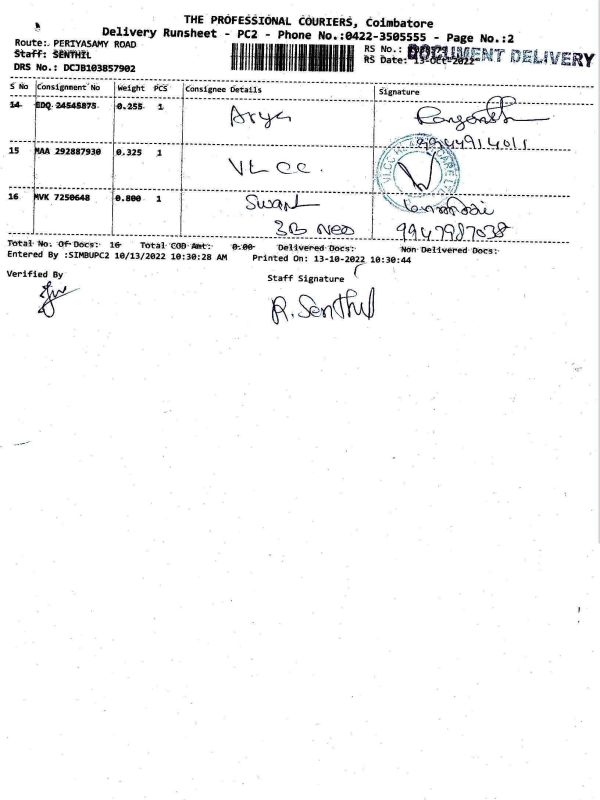 THE PROFESSIONAL COURIERS, Coimbatore
Delivery Runsheet - PC2 - Phone No.:0422-3505555 - Page No.:2
Route: PERIYASAMY ROAD
Staff: SENTHIL
DRS No.: DCJB103857902
RS No.:
DOCUMENT DELIVERY
RS Date: 13-Oct-2022
S No Consignment No Weight PCS Consignee Details Signature
14 EDQ 24545875 0.255 1 Arya
9944914011
15 MAA 292887930 0.325 1 VLCC.
16 MVK 7250648 0.800 1 Swan
3B Neo 9947987038
Total No. Of Docs: 16 Total COD Amt: 0.00 Delivered Docs: Non Delivered Docs:
Entered By :SIMBUPC2 10/13/2022 10:30:28 AM Printed On: 13-10-2022 10:30:44
Verified By
Staff Signature
R. Senthil